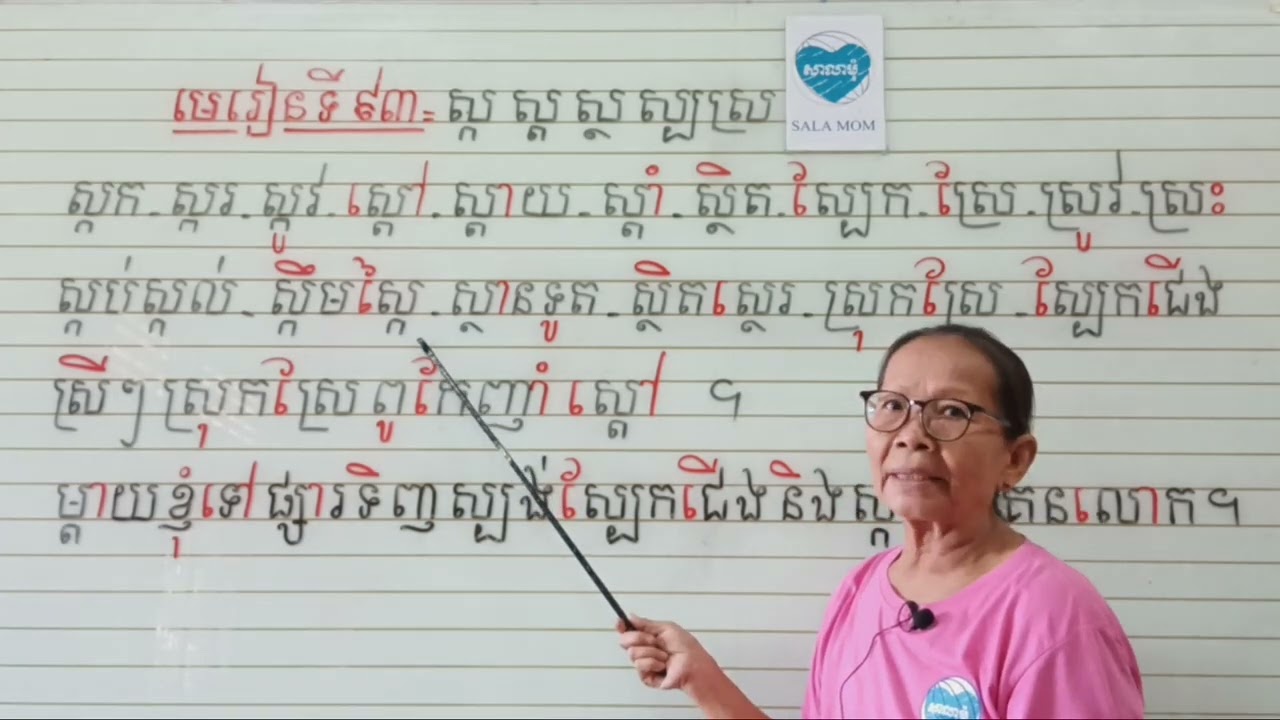 មេរៀនទី ៩៣= ស្ក ស្ត ស្ថ ស្ប ស្រ
សាលាមុំ
SALA MOM
ស្កក - ស្ករ - ស្គូវ៍ - ស្តៅ - ស្តាយ - ស្តាំ - ស្ថិត - ស្បែក - ស្រែ - ស្រូវ - ស្រះ
ស្កប់ស្កល់ - ស្កឹមស្កៃ - ស្ថានទូត - ស្ថិតស្ថេរ - ស្រុកស្រែ - ស្បែកជើង
ស្រីៗ ស្រុកស្រែ ពូកែញាំ ស្តៅ ។
ម្តាយខ្ញុំទៅ ផ្សារទិញ ស្បង់ ស្បែកជើង និង គេនលោក ។
សាលាមុំ